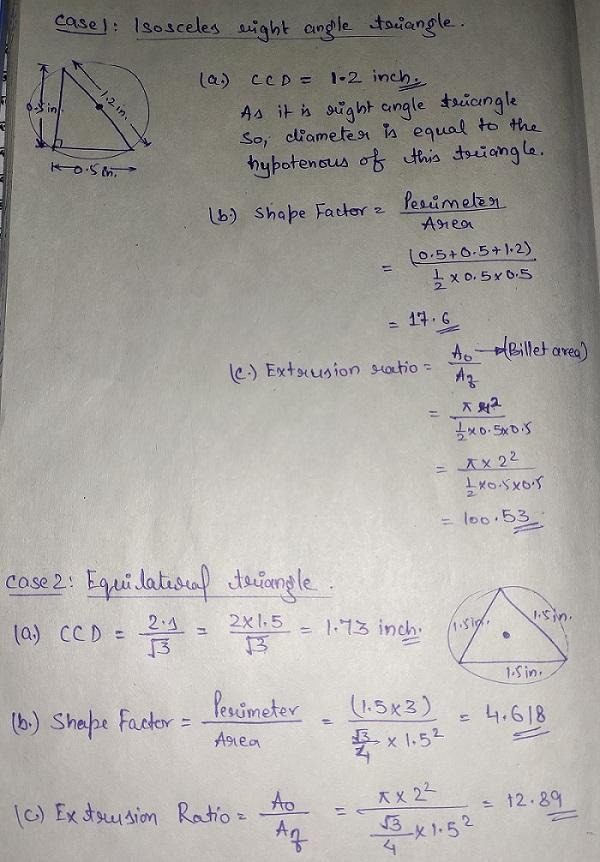 Case 1: Isosceles right angle triangle.
0.5 in.
1.2 in.
0.5 in.
(a.) CCD = 1.2 inch.
As it is right angle triangle
So, diameter is equal to the
hypotenous of this triangle.
(b.) Shape Factor = Perimeter / Area
= (0.5+0.5+1.2) / 1/2 × 0.5 × 0.5
= 17.6
(c.) Extrusion ratio = A₀ / A_f → (Billet area)
= π r² / 1/2 × 0.5 × 0.5
= π × 2² / 1/2 × 0.5 × 0.5
= 100.53
Case 2: Equilateral triangle.
(a.) CCD = 2.s / √3 = 2×1.5 / √3 = 1.73 inch.
1.5in.
1.5in.
1.5in.
(b.) Shape Factor = Perimeter / Area = (1.5×3) / √3/4 × 1.5² = 4.618
(c.) Extrusion Ratio = A₀ / A_f = π × 2² / √3/4 × 1.5² = 12.89